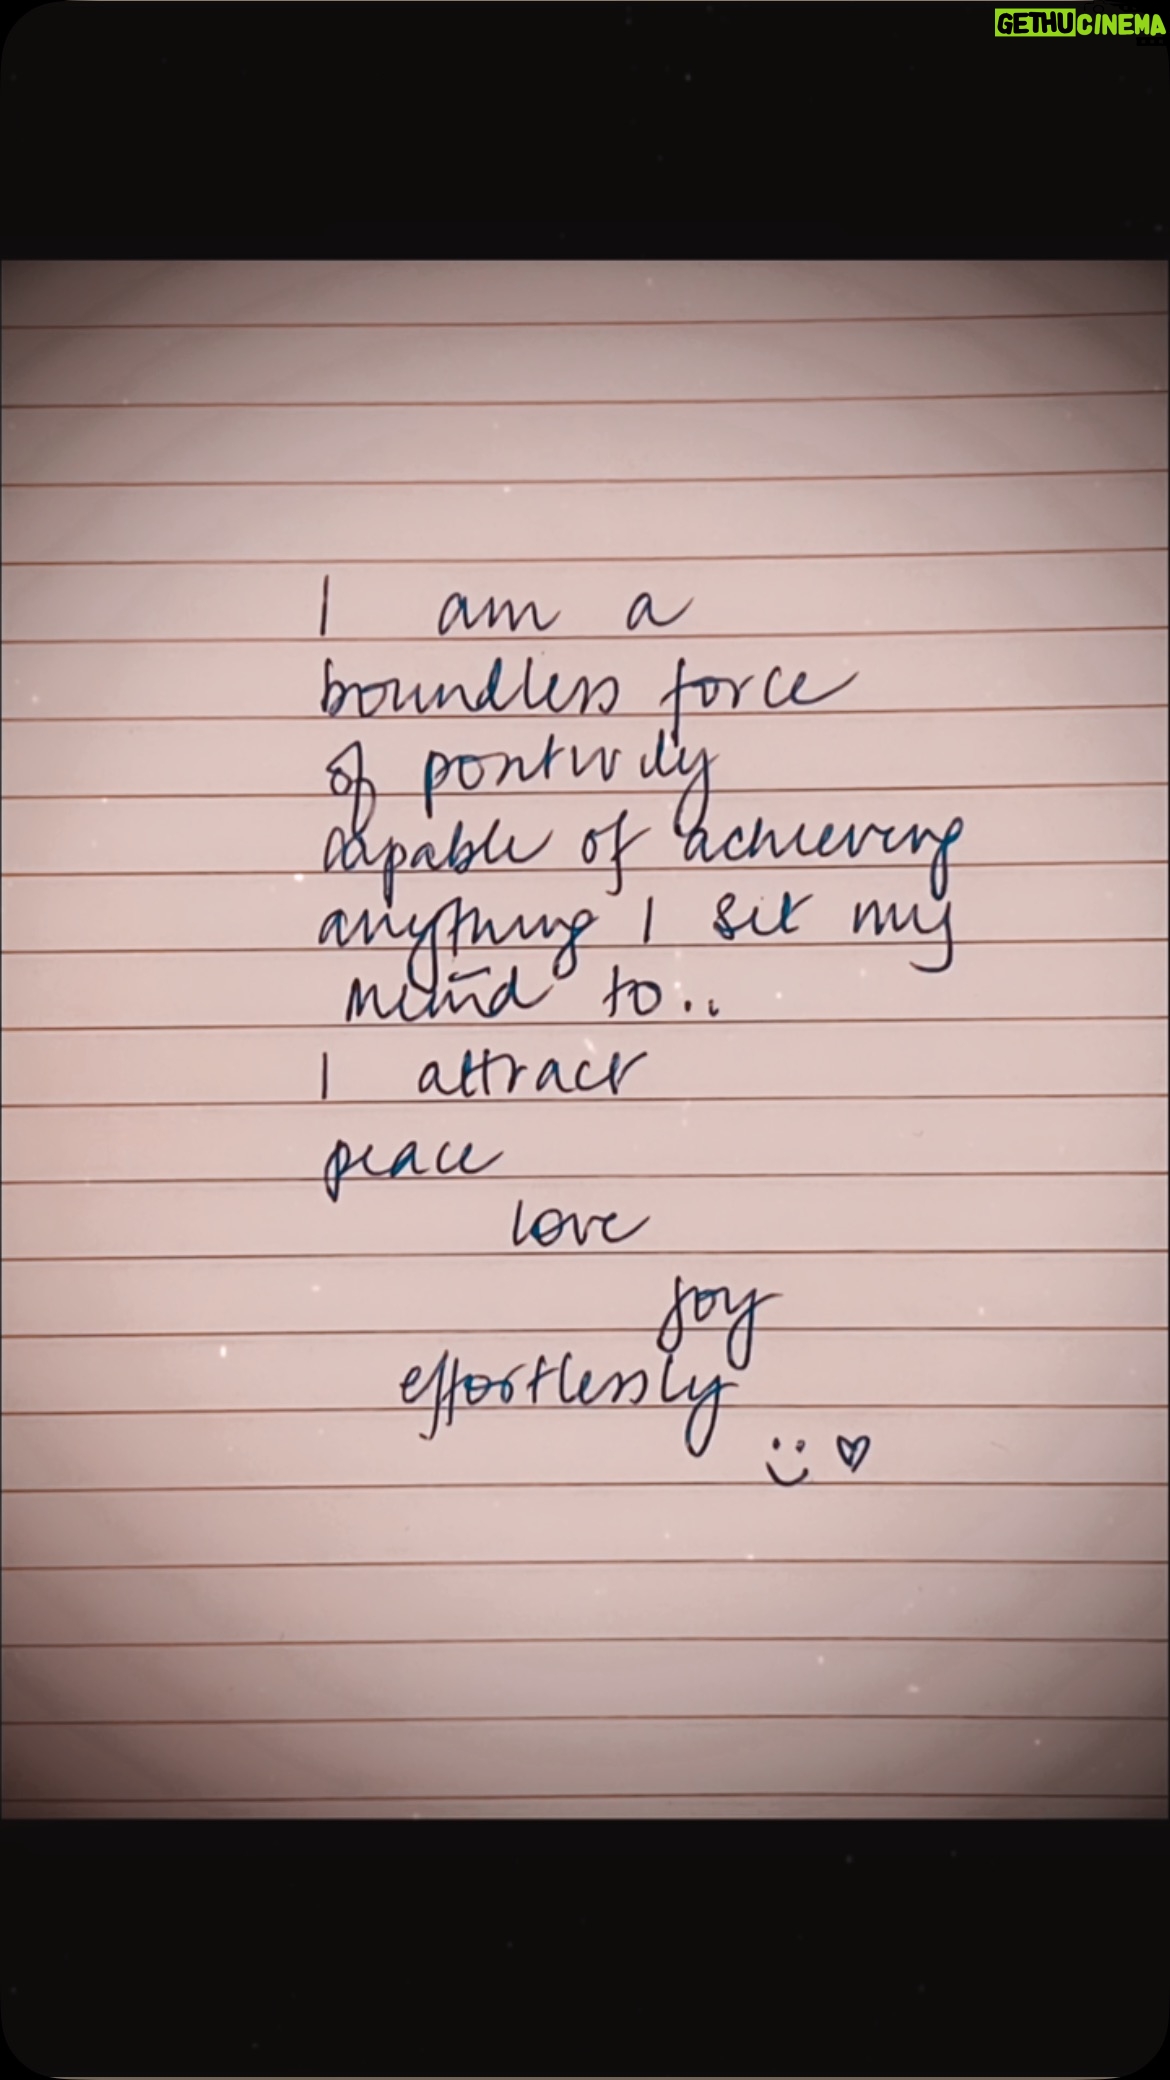 GETHU CINEMA
I am a
boundless force
of positivity
capable of achieving
anything I set my
mind to..
I attract
peace
love
joy
effortlessly